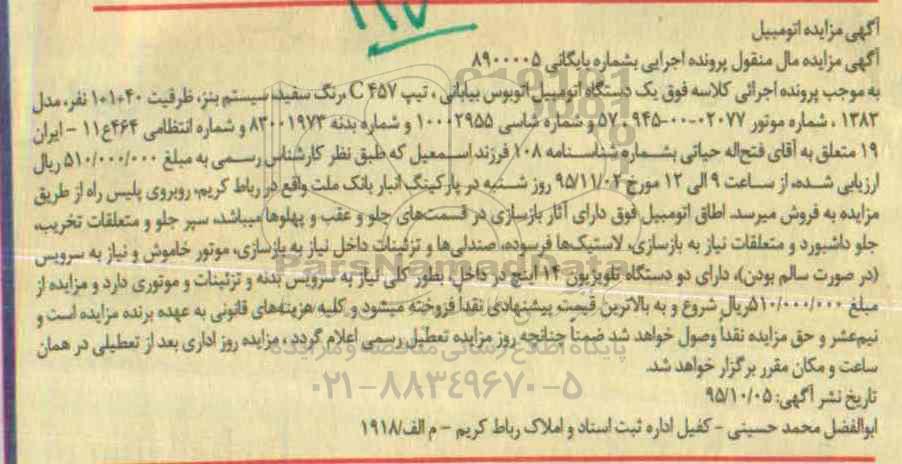 ۱۱۷
آگهی مزایده اتومبیل
آگهی مزایده مال منقول پرونده اجرایی بشماره بایگانی ۸۹۰۰۰۰۵
به موجب پرونده اجرائی کلاسه فوق یک دستگاه اتومبیل اتوبوس بیابانی ، تیپ C ۴۵۷ ،رنگ سفید، سیستم بنز، ظرفیت ۴۰+۱+۱ نفر، مدل
۱۳۸۳ ، شماره موتور ۰۲۰۷۷-۰۰-۹۴۵ ،۵۷ و شماره شاسی ۱۰۰۰۲۹۵۵ و شماره بدنه ۸۳۰۰۱۹۷۳ و شماره انتظامی ۴۶۴ع۱۱ - ایران
۱۹ متعلق به آقای فتح‌اله حیاتی بشـماره شناسـنامه ۱۰۸ فرزند اسـمعیل که طبق نظر کارشناس رسـمی به مبلغ ۵۱۰/۰۰۰/۰۰۰ ریال
ارزیابی شـده، از سـاعت ۹ الی ۱۲ مورخ ۹۵/۱۱/۰۲ روز شـنبه در پارکینگ انبار بانک ملت واقع در رباط کریم، روبروی پلیس راه از طریق
مزایده به فروش میرسد. اطاق اتومبیل فوق دارای آثار بازسازی در قسمت‌های جلو و عقب و پهلوها میباشد، سپر جلو و متعلقات تخریب،
جلو داشبورد و متعلقات نیاز به بازسازی، لاستیک‌ها فرسوده، صندلی‌ها و تزئینات داخل نیاز به بازسازی، موتور خاموش و نیاز به سرویس
(در صورت سالم بودن)، دارای دو دستگاه تلویزیون ۱۴ اینچ در داخل، بطور کلی نیاز به سرویس بدنه و تزئینات و موتوری دارد و مزایده از
مبلغ ۵۱۰/۰۰۰/۰۰۰ریال شروع و به بالاترین قیمت پیشنهادی نقداً فروخته میشود و کلیه هزینه‌های قانونی به عهده برنده مزایده است و
نیم‌عشر و حق مزایده نقداً وصول خواهد شد ضمناً چنانچه روز مزایده تعطیل رسمی اعلام گردد ، مزایده روز اداری بعد از تعطیلی در همان
ساعت و مکان مقرر برگزار خواهد شد.
تاریخ نشر آگهی: ۹۵/۱۰/۰۵
ابوالفضل محمد حسینی - کفیل اداره ثبت اسناد و املاک رباط کریم - م الف/۱۹۱۸
ParsNamadData
پایگاه اطلاع رسانی مناقصه و مزایده
۰۲۱-۸۸۳۴۹۶۷۰-۵